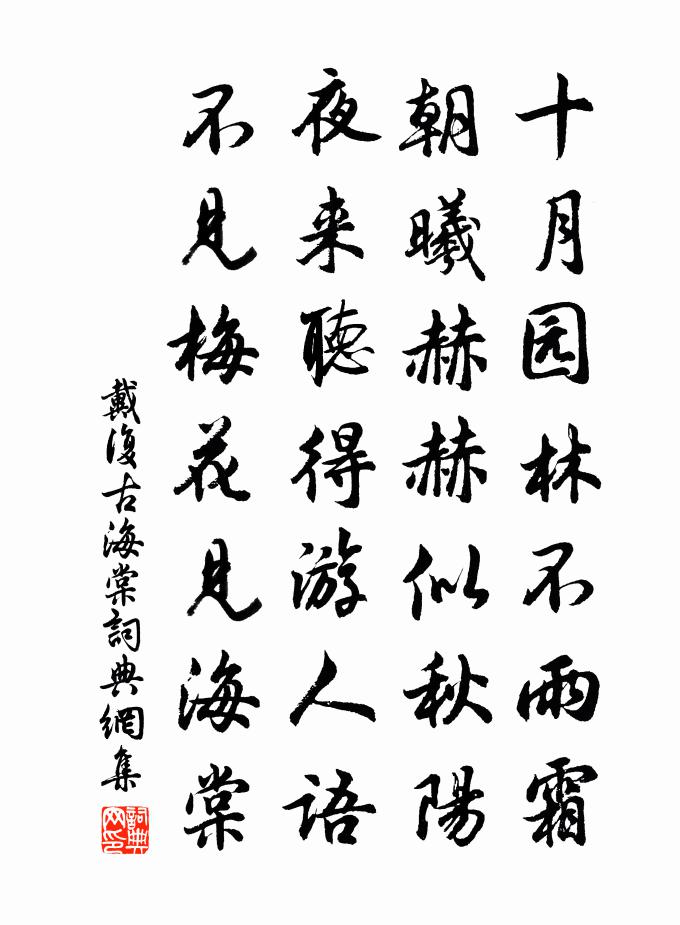 十月园林不雨霜
朝曦赫赫似秋陽
夜来聽得游人語
不見梅花見海棠
戴復古海棠詞典網集
詞典网印